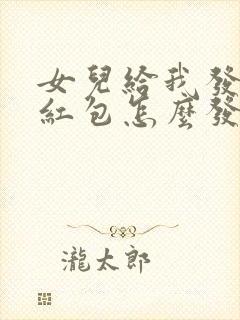 女兒給我發
紅包怎麼發
瀧太郎